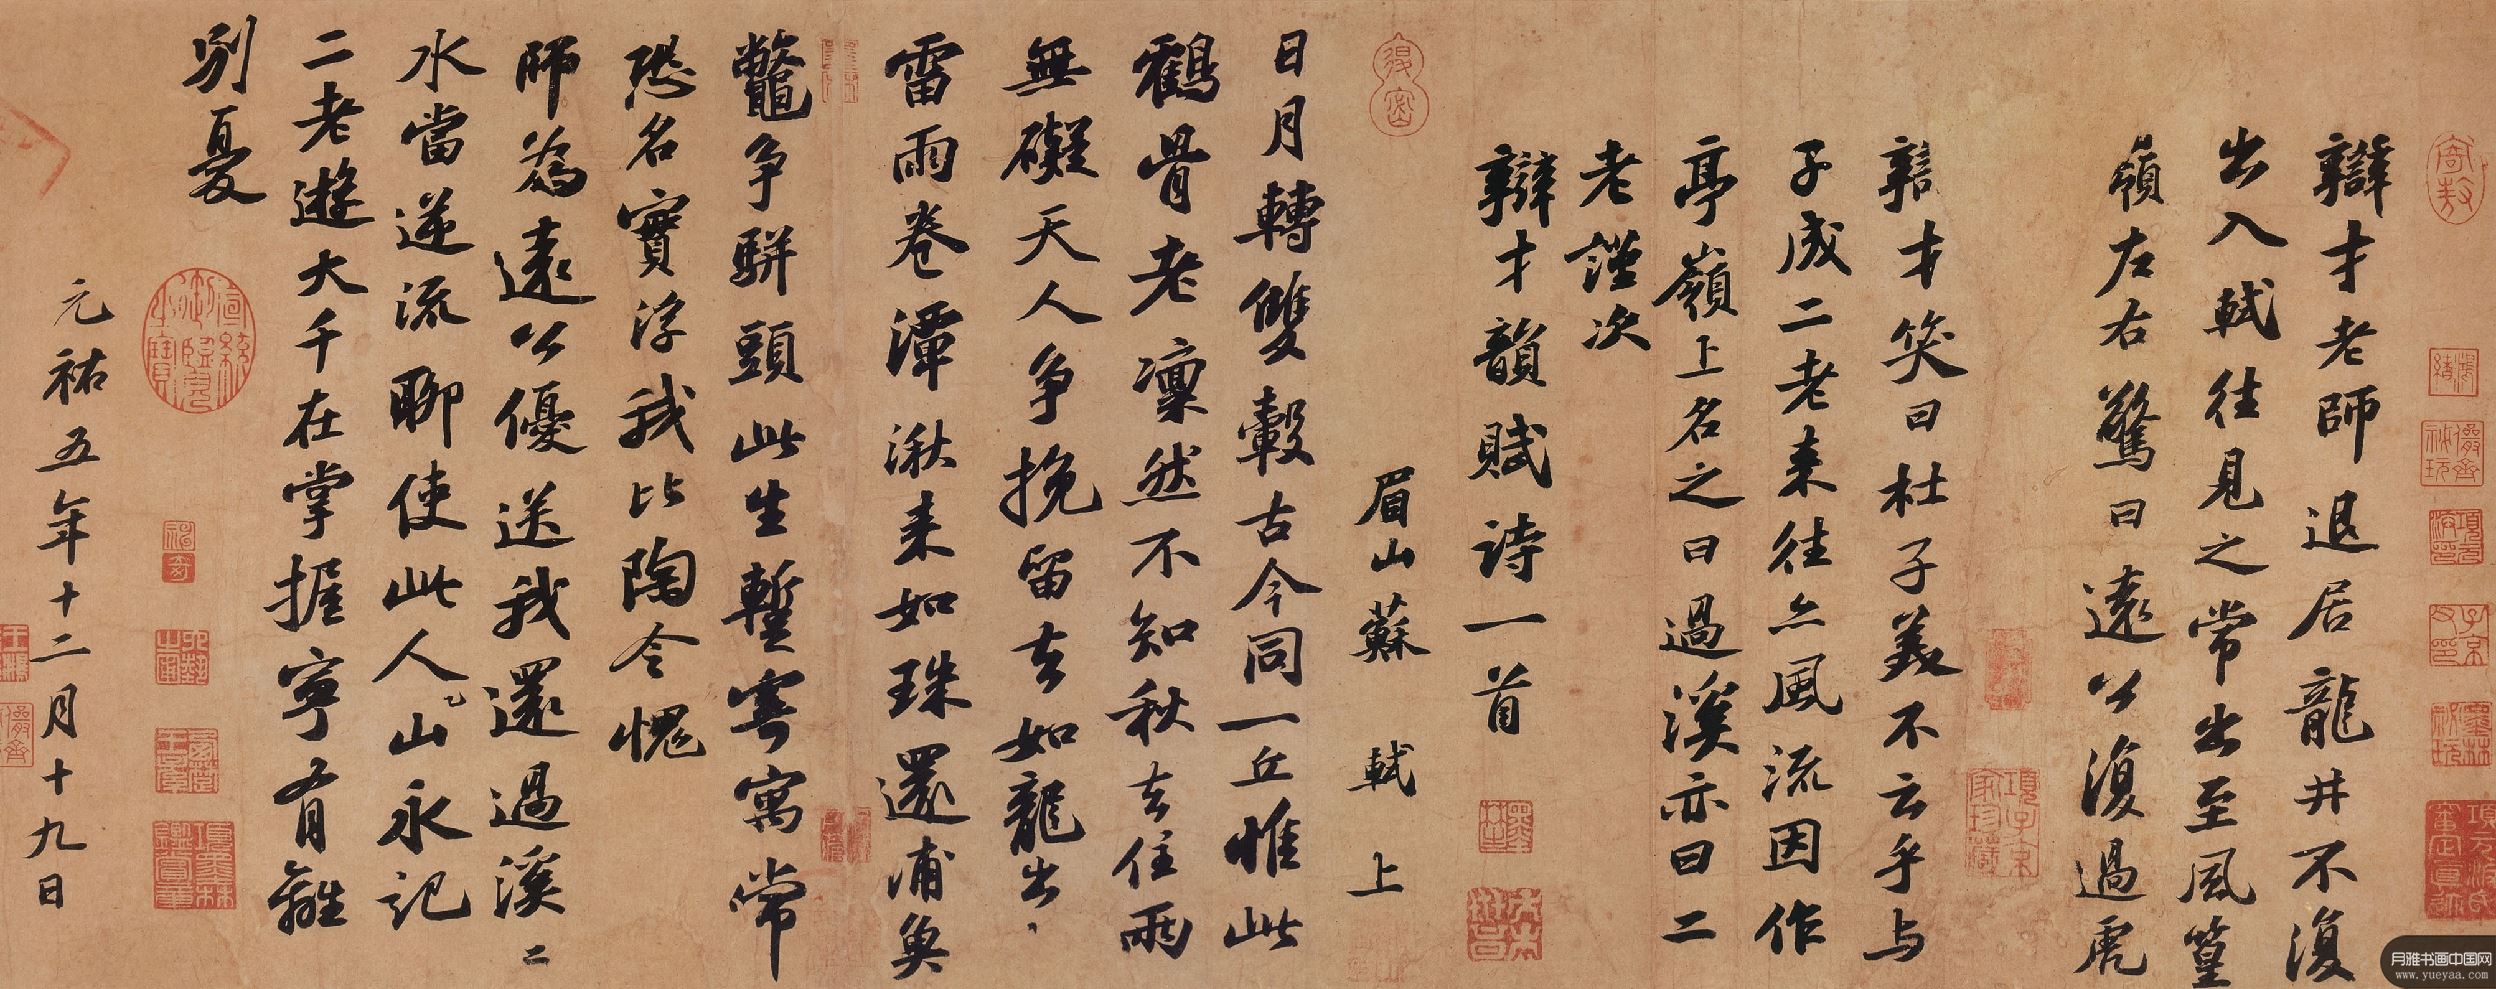 辯才老師退居龍井不復
出入軾往見之常出至風篁
嶺左右驚曰遠公復過虎
溪矣辯才笑曰杜子美不云乎與
子成二老來往亦風流因作
亭嶺上名之曰過溪亦曰二
老謹次
辯才韻賦詩一首
眉山蘇軾上
日月轉雙轂古今同一丘惟此
鶴骨老凜然不知秋去住兩
無礙天人爭挽留去如龍出
雷雨卷潭湫來如珠還浦魚
鼈爭駢頭此生蹔寄寓常
恐名實浮我比陶令愧
師為遠公優送我還過溪溪
水當逆流聊使此人山永記
二老遊大千在掌握寧有離
別憂
元祐五年十二月十九日
項子京家珍藏
項元汴氏審定真跡
項墨林鑑賞章
月雅书画中国网
www.yueyaa.com